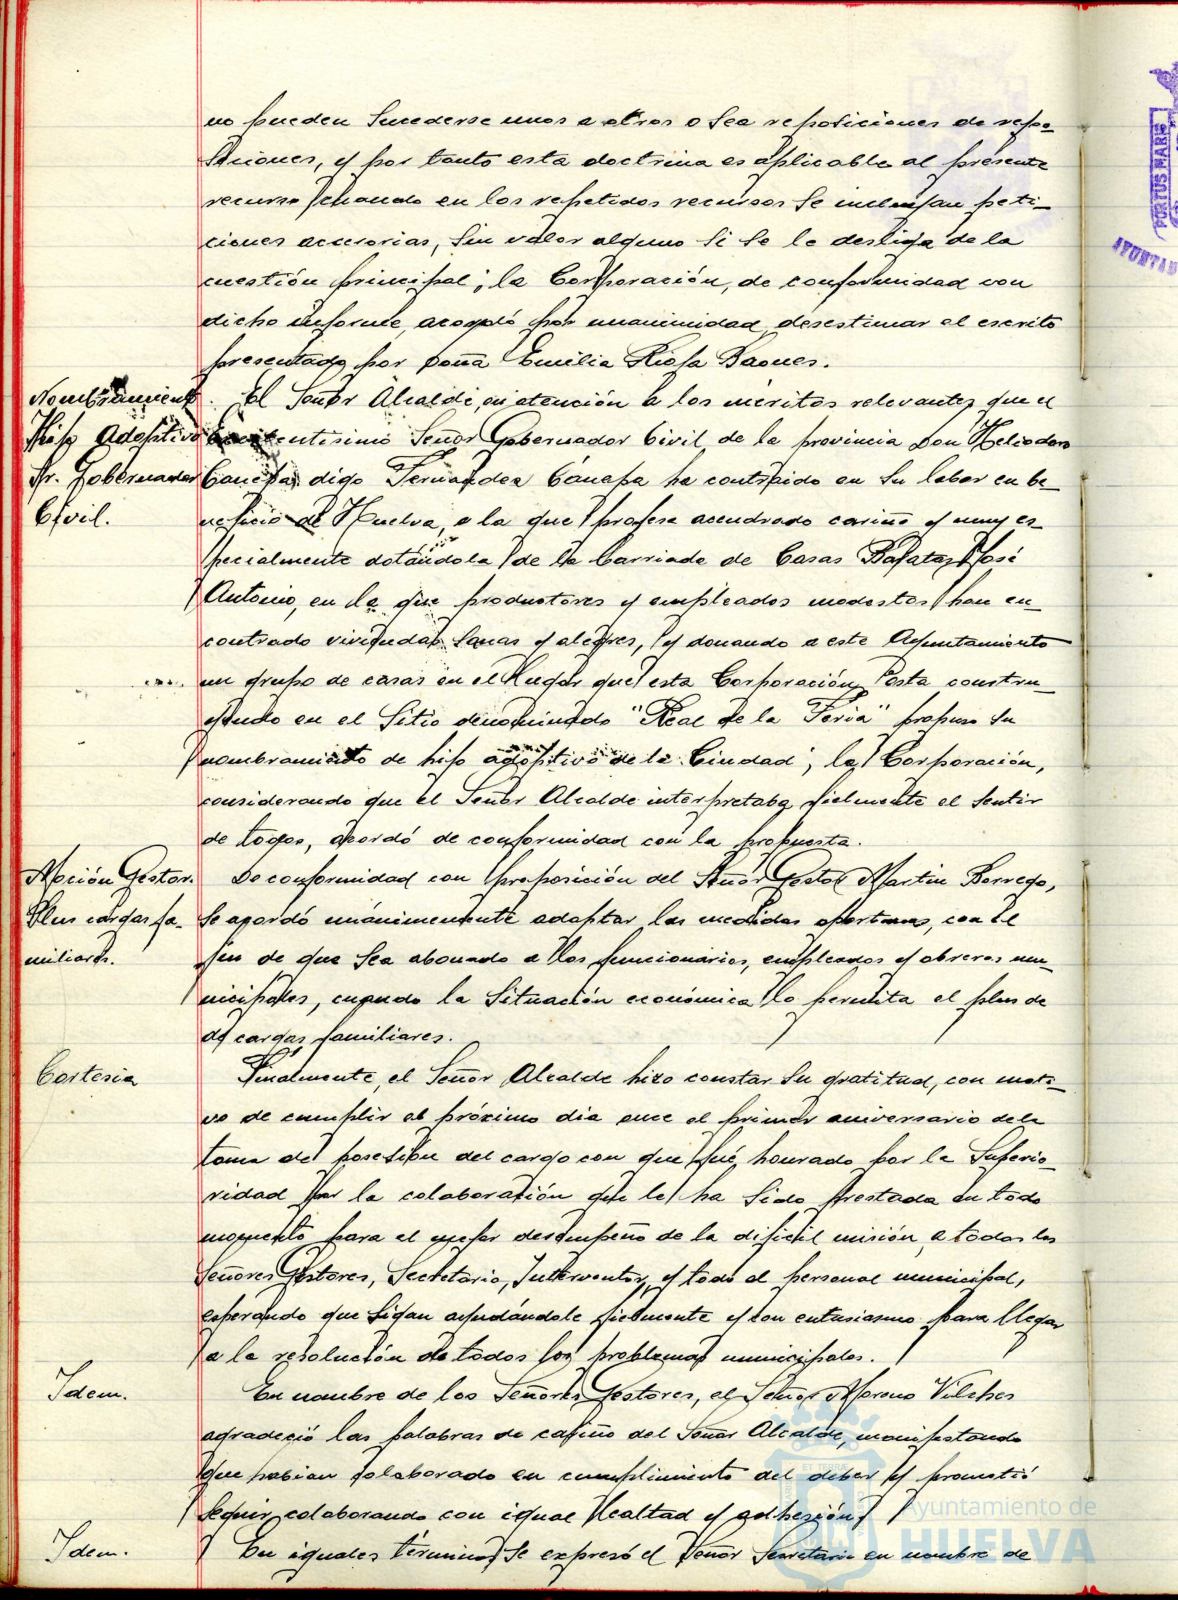 no pueden sucederse unos a otros o sea reposiciones de repo-
siciones, y por tanto esta doctrina es aplicable al presente
recurso cuando en los repetidos recursos se incluyan peti-
ciones accesorias, sin valor alguno si se le desliga de la
cuestión principal; la Corporación, de conformidad con
dicho informe, acordó por unanimidad desestimar el escrito
presentado por Doña Emilia Baques.
Nombramiento
Hijo Adoptivo
Sr. Gobernador
Civil.
El Señor Alcalde, en atención a los méritos relevantes que el
Excelentísimo Señor Gobernador Civil de la provincia Don Heliodoro
Canepa digo Fernandez Cánepa ha contraido en su labor en be-
neficio de Huelva, a la que profesa acendrado cariño y muy es-
pecialmente dotándola de la barriada de Casas Baratas José
Antonio, en la que productores y empleados modestos han en-
contrado viviendas sanas y alegres, y donando a este Ayuntamiento
un grupo de casas en el lugar que esta Corporación esta constru-
yendo en el Sitio denominado "Real de la Feria" propuso su
nombramiento de hijo adoptivo de la Ciudad; la Corporación,
considerando que el Señor Alcalde interpretaba fielmente el sentir
de todos, acordó de conformidad con la propuesta.
Moción Gestor.
Plus cargas fa-
miliares.
De conformidad con proposición del Señor Gestor Martin Borrego,
se acordó unánimemente adoptar las medidas oportunas, con el
fin de que sea abonado a los funcionarios, empleados y obreros mu-
nicipales, cuando la situación económica lo permita el plus de
de cargas familiares.
Cortesia
Finalmente, el Señor Alcalde hizo constar su gratitud, con moti-
vo de cumplir el próximo dia once el primer aniversario de la
toma de posesión del cargo con que fué honrado por la Superio-
ridad por la colaboración que le ha sido prestada en todo
momento para el mejor desempeño de la dificil misión, a todos los
Señores Gestores, Secretario, Interventor, y todo el personal municipal,
esperando que sigan ayudándole fielmente y con entusiasmo para llegar
a la resolución de todos los problemas municipales.
Idem.
En nombre de los Señores Gestores, el Señor Moreno Vilches
agradeció las palabras de cariño del Señor Alcalde, manifestando
que habian colaborado en cumplimiento del deber y prometió
seguir colaborando con igual lealtad y adhesión.
Idem.
En iguales términos se expresó el Señor Secretario en nombre de
PORTUS MARIS
AYUNTAM
Ayuntamiento de
HUELVA